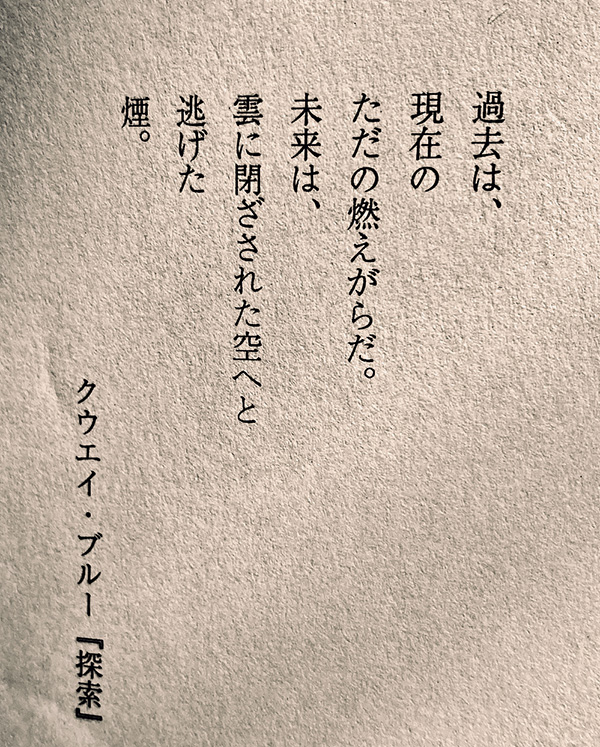 過去は、
現在の
ただの燃えがらだ。
未来は、
雲に閉ざされた空へと
逃げた
煙。
クウエイ・ブルー『探索』